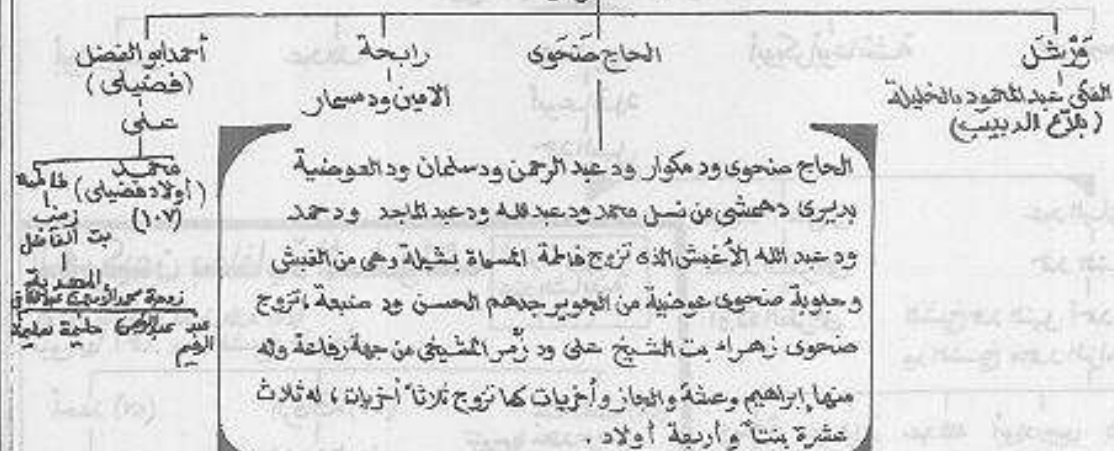 قرشل
الفكي عبد المحمود بالخليلة
(بلاع الدبيب)
الحاج صَنحَوى
رابحة
الامين ود مسمار
أحمد ابو الفضل
(فضيلى)
علي
محمد
(أولاد فضيلى)
(١٠٧)
فاطمة
زينب
بت الفاضل
المهدية
حليمة
الحاج صنحوى ود مكوار ود عبد الرحمن ود سلمان ود العوضية
بديرى دهمشى من نسل محمد ود عبد الله ود عبد الماجد ود حمد
ود عبد الله الأغبش الذى تزوج فاطمة المسماة نشيلة وهى من الغبش
وحبوبة صنحوى عوضية من الجوير جدهم الحسن ود ضبعة ، تزوج
صنحوى زهراء بت الشيخ على ود زمر المشيخى من جهة رفاعة وله
منها إبراهيم وعشة والجاز وأخريات كما تزوج ثلاثاً أخريات ، له ثلاث
عشرة بنتاً وأربعة أولاد .